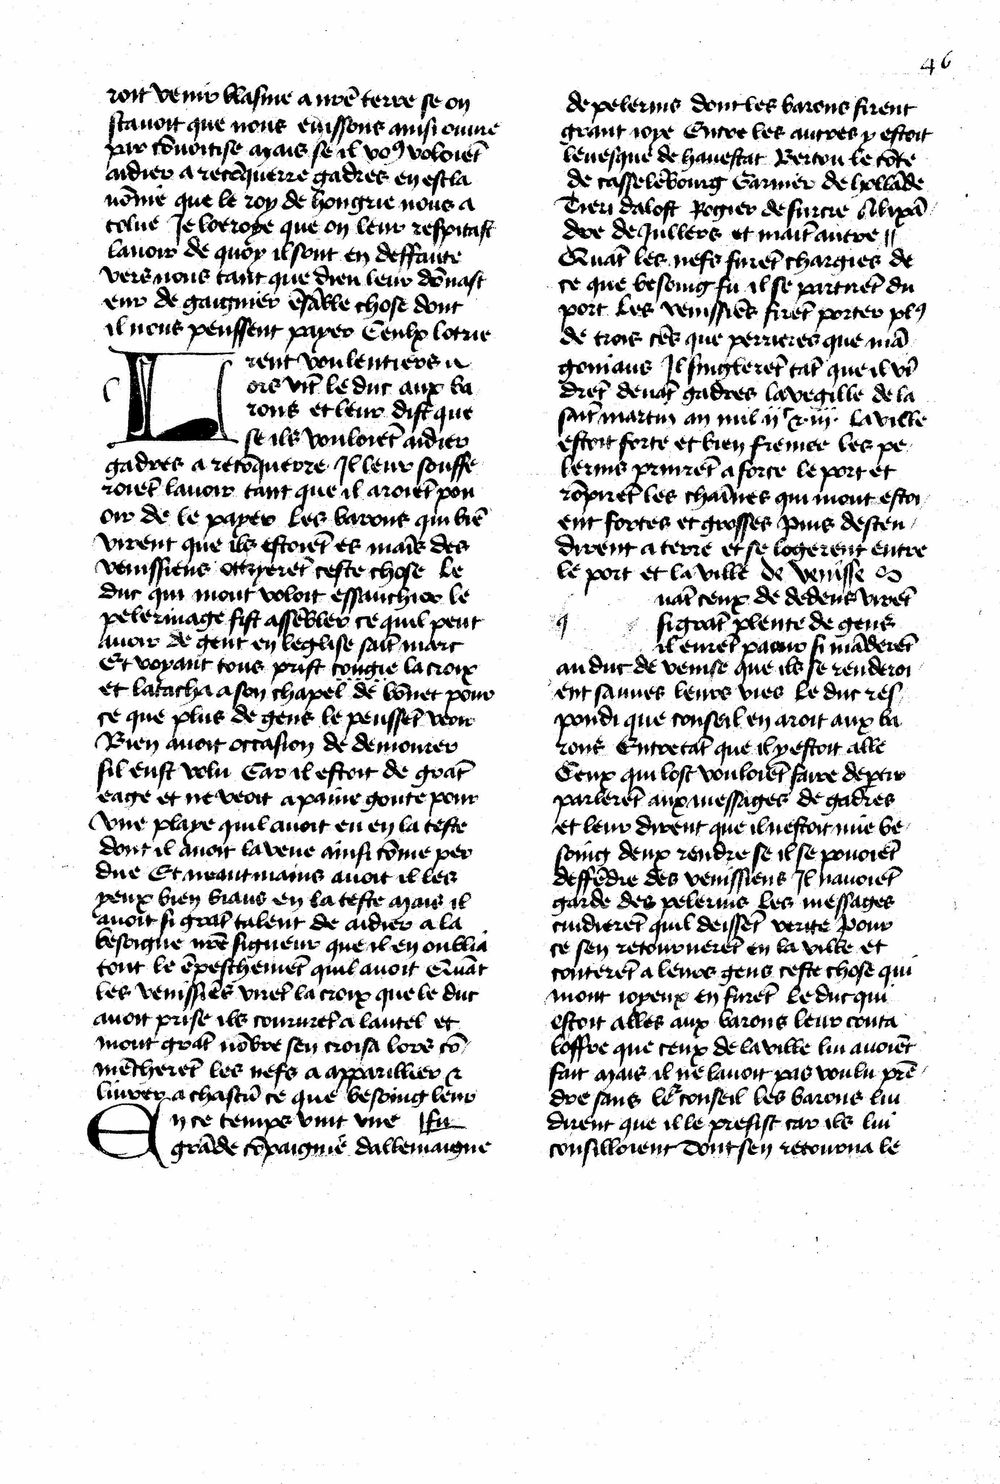 46
roit venir blasme a nr̄e terre se on
scauoit que nous euissons ainsi ouure
par cōuoitise Mais se il voꝰ voloiēt
aidier a recōquerre gadres en escla
uōnie que le roy de hongrie nous a
tolue Je loeroye que on leur respitast
lauoir de quoy il sont en deffaute
vers nous tant que dieu leur dōnast
eur de gaignier ēsāble chose dont
il nous peussent payer Ceulx lotrie
rent voulentiers
Lors vīt le duc aux ba
rons et leur dist que
se ils vouloiēt aidier
gadres a recōquerre Il leur souffe
roiēt lauoir tant que il aroiēt pou
oir de le payer Les barons qui biē
virent que ils estoiēt es maīs des
venissiens ottryerēt ceste chose Le
duc qui mout voloit essauchier le
pelerinage fist assēbler ce quil peut
auoir de gent en leglise saīt marc
Et voyant tous prist congie la croix
et latacha a son chapel de bōnet pour
ce que plus de gens le peussēt veoir
Bien auoit occasion de demourer
sil eust volu Car il estoit de grāt
eage et ne veoit a paine goute pour
vne playe quil auoit eu en la teste
dont il auoit la veue ainsi cōme per
due Et neantmains auoit il les
yeux bien biaus en la teste Mais il
auoit si grāt talent de aidier a la
besoigne nr̄e signeur que il en oublia
tout le ēpeschemēt quil auoit Quāt
les venissiēs virēt la croix que le duc
auoit prise ils coururēt a lautel et
mout grāt nōbre sen croisa lors cō
mēcherēt les nefs a apparillier ⁊
liurer a chascū ce que besoing leur
En ce temps vint vne fu
grāde cōpaignie dallemaigne
de pelerins dont les barons firent
grant ioye Entre les autres y estoit
leuesque de hauestat Bertou le cōte
de casselēbourg Garnier de hollāde
Tieri dalost Rogier de surcre Alixā
dre de Jullers et maīt autre
Quāt les nefs furēt chargies de
ce que besoing fu il se partirēt du
port Les venissiēs firēt porter plꝰ
de trois cēs que perrieres que mā
goniaus Il singlerēt tāt que il vī
drēt deuāt gadres la vegille de la
saīt martin an mil ijᶜ ⁊ iij. La ville
estoit forte et bien fremee les pe
lerins prinrēt a force le port et
rōpirēt les chaīnes qui mout estoi
ent fortes et grosses Puis descen
dirent a terre et se logerent entre
le port et la ville de venisse
Quāt ceux de dedens virēt
si grāt plente de gens
il eurēt paour si māderēt
au duc de venise que ils se renderoi
ent sauues leurs vies Le duc res
pondi que conseil en aroit aux ba
rons Entretāt que il y estoit alle
Ceux qui lost vouloiēt faire deptir
parlerēt aux messages de gadres
et leur dirent que il nestoit mie be
soing deux rendre se il se pouoiēt
deffēdre des venissiens Il nauoiēt
garde des pelerins Les messages
cuidierēt quil deissēt verite Pour
ce sen retournerēt en la ville et
conterēt a leurs gens ceste chose qui
mout ioyeux en furēt Le duc qui
estoit alles aux barons leur conta
loffre que ceux de la ville lui auoiēt
fait Mais il ne lauoit pas voulu prē
dre sans leʳ conseil Les barons lui
dirent que il le presist car ils lui
consilloient Dont sen retourna le